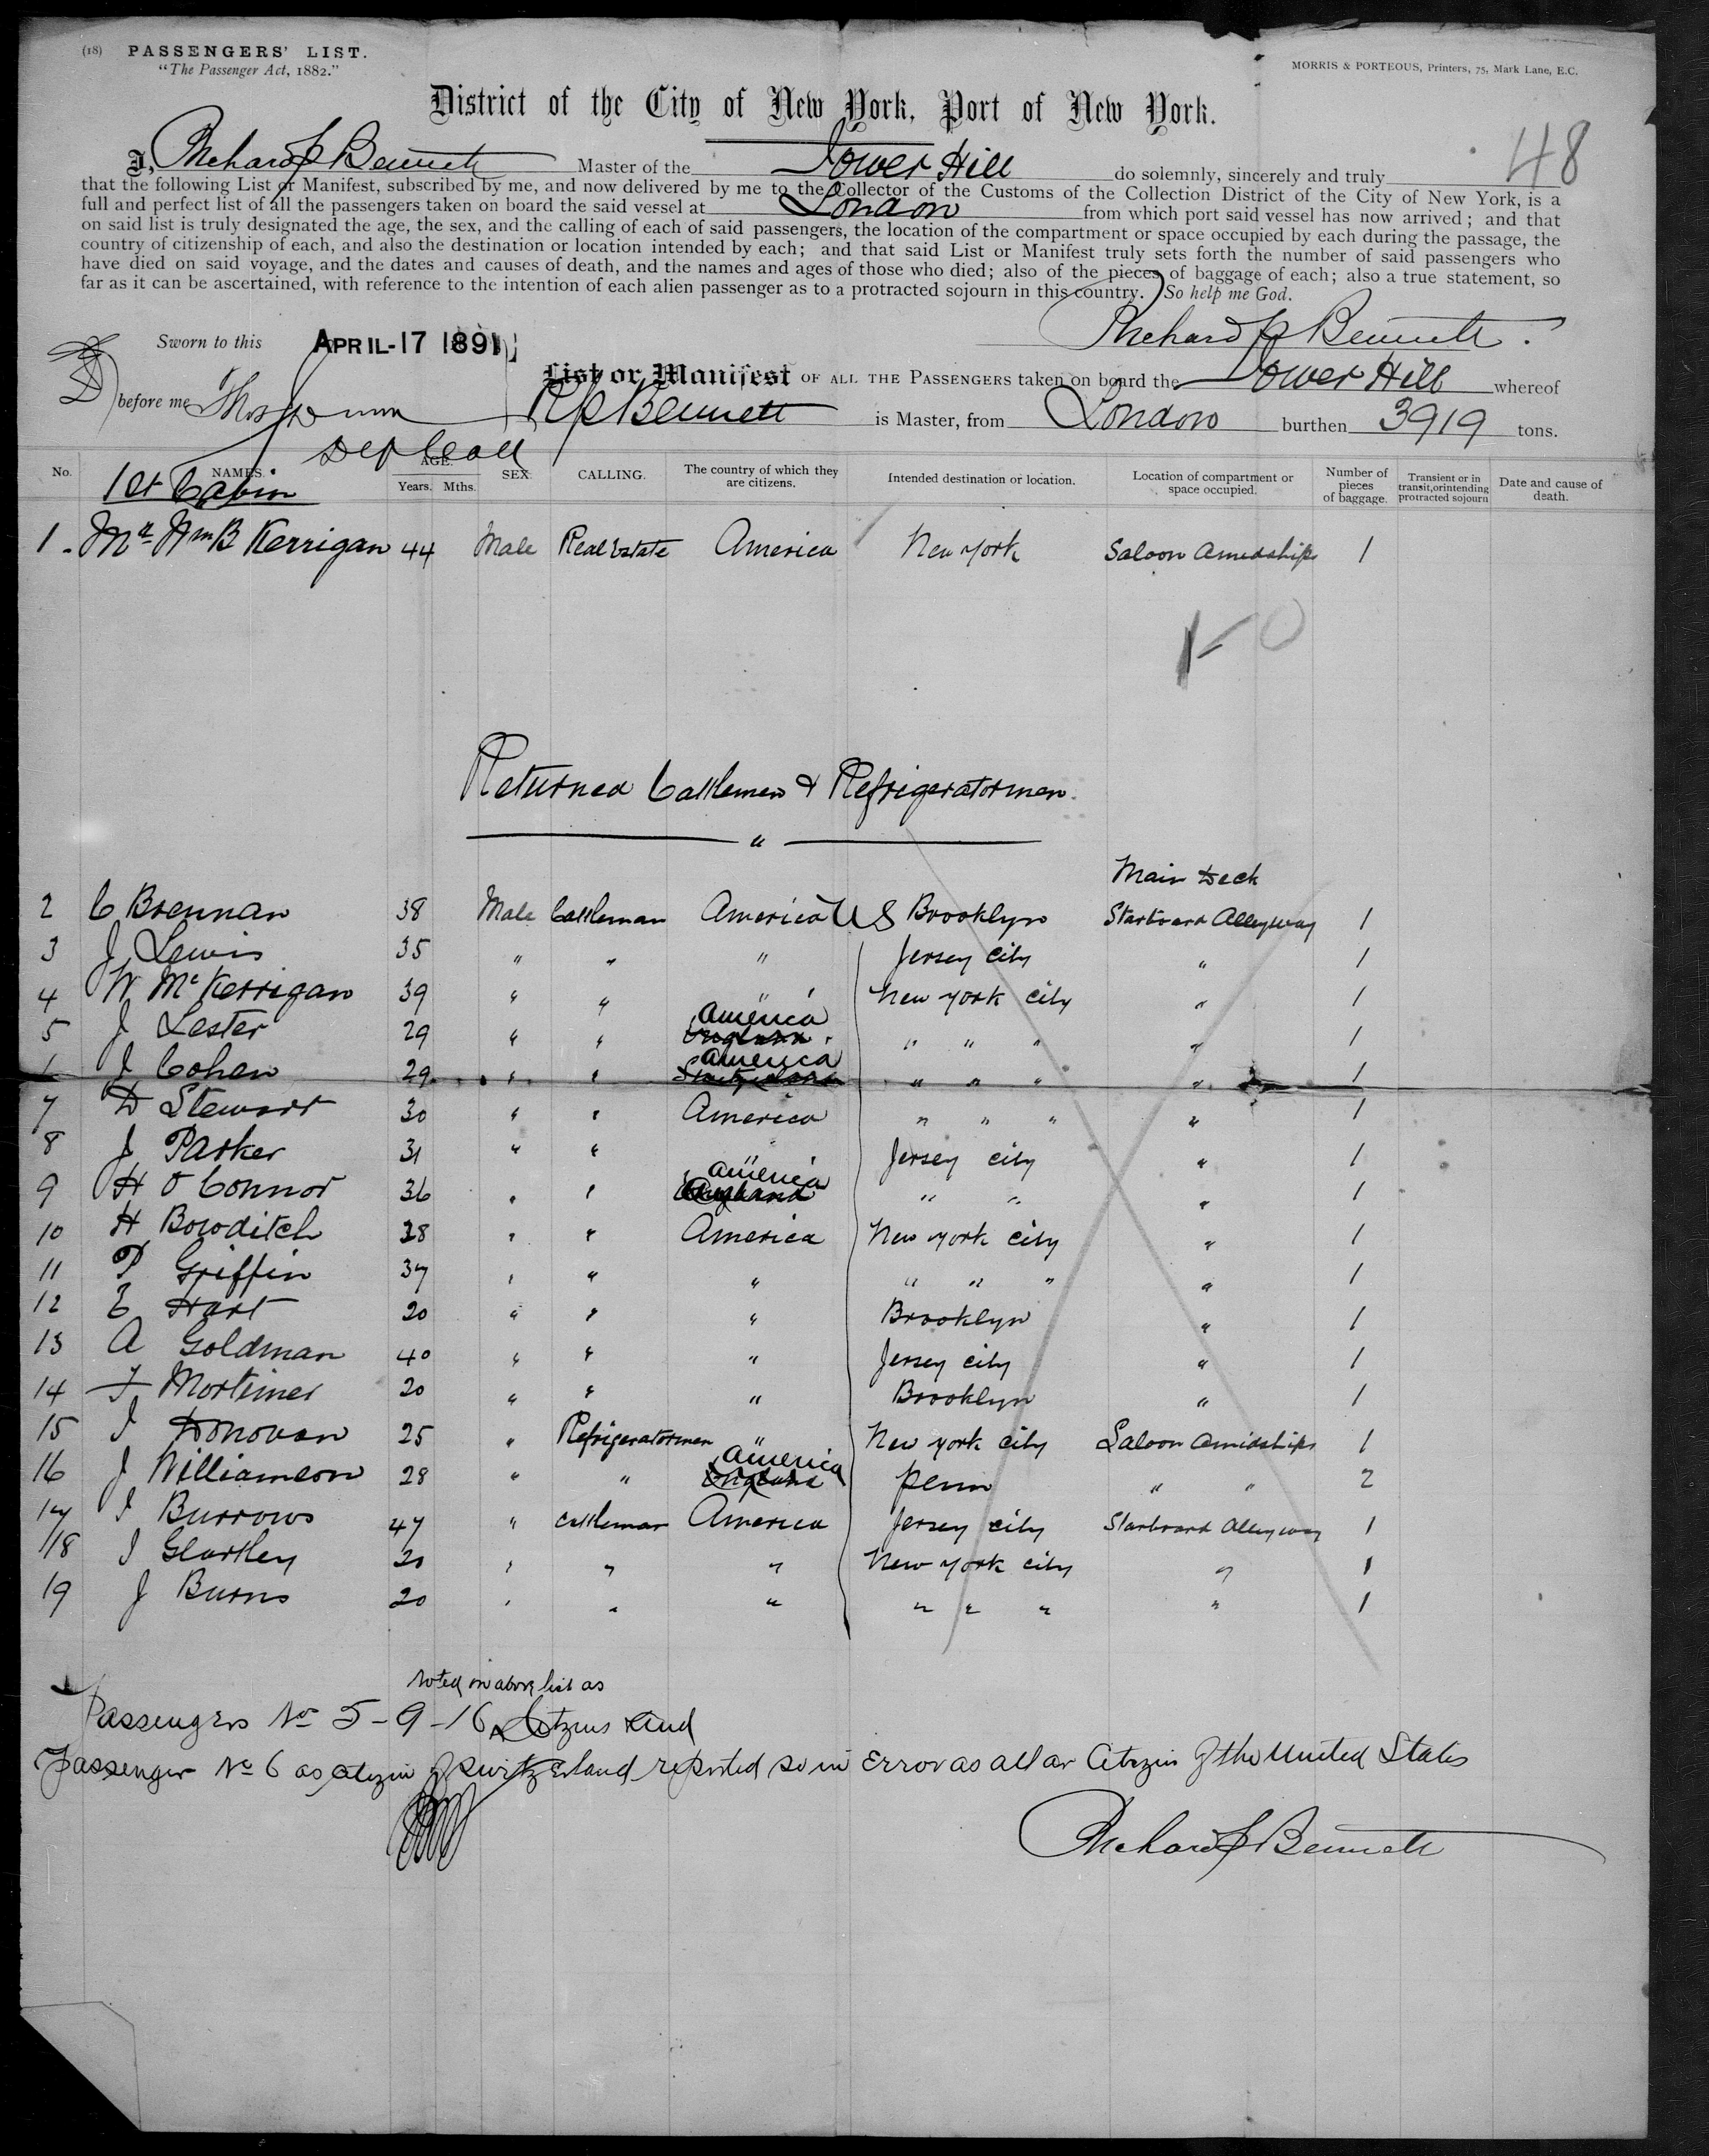 (18) PASSENGERS' LIST.
"The Passenger Act, 1882."
MORRIS & PORTEOUS, Printers, 75, Mark Lane, E.C.
District of the City of New York, Port of New York.
48
I, Richard P Bennett Master of the Tower Hill do solemnly, sincerely and truly
that the following List or Manifest, subscribed by me, and now delivered by me to the Collector of the Customs of the Collection District of the City of New York, is a
full and perfect list of all the passengers taken on board the said vessel at London from which port said vessel has now arrived; and that
on said list is truly designated the age, the sex, and the calling of each of said passengers, the location of the compartment or space occupied by each during the passage, the
country of citizenship of each, and also the destination or location intended by each; and that said List or Manifest truly sets forth the number of said passengers who
have died on said voyage, and the dates and causes of death, and the names and ages of those who died; also of the pieces of baggage of each; also a true statement, so
far as it can be ascertained, with reference to the intention of each alien passenger as to a protracted sojourn in this country. So help me God.
Richard P Bennett.
Sworn to this APRIL-17 1891
List or Manifest OF ALL THE PASSENGERS taken on board the Tower Hill whereof
before me Thos Dunn R P Bennett is Master, from London burthen 3919 tons.
Dep Coll
No. NAMES. AGE. Years. Mths. SEX. CALLING. The country of which they are citizens. Intended destination or location. Location of compartment or space occupied. Number of pieces of baggage. Transient or in transit, or intending protracted sojourn Date and cause of death.
1st Cabin
1. Mr Wm B Kerrigan 44 Male Real Estate America New York Saloon Amidships 1
1-0
Returned Cattlemen & Refrigeratormen.
"
Main Deck
2 C Brennan 38 Male Cattleman America US Brooklyn Starboard Alleyway 1
3 J Lewis 35 " " " Jersey City " 1
4 W McKerrigan 39 " " " New York City " 1
5 J Lester 29 " " England America " " " " 1
J Cohen 29 " " Switzerland America " " " " 1
7 D Stewart 30 " " America " " " " 1
8 J Parker 31 " " " Jersey City " 1
9 H O Connor 36 " " England America " " " 1
10 H Bowditch 38 " " America New York City " 1
11 P Griffin 37 " " " " " " " 1
12 E Hart 20 " " " Brooklyn " 1
13 A Goldman 40 " " " Jersey City " 1
14 F Mortimer 20 " " " Brooklyn " 1
15 J Donovan 25 " Refrigeratormen " New York City Saloon Amidships 1
16 J Williamson 28 " " England America Penn " " 2
17 J Burrows 47 " Cattleman America Jersey City Starboard Alleyway 1
18 J Glartley 20 " " " New York City " 1
19 J Burns 20 " " " " " " " 1
noted in above list as
Passengers No 5-9-16 Citizens and
Passenger No 6 as citizen of Switzerland reported so in Error as all are Citizens of the United States
Richard P Bennett